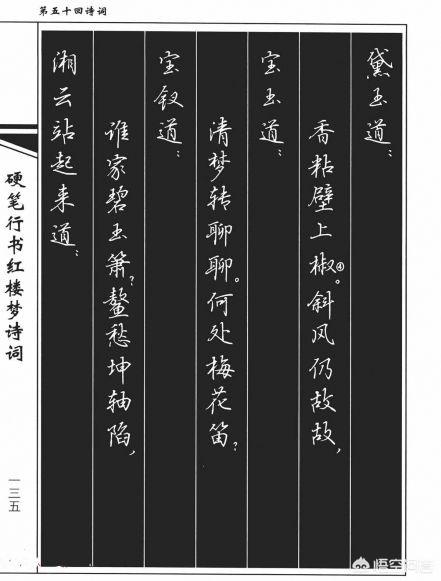 第五十回诗词
黛玉道：
香粘壁上椒④。斜风仍故故，
宝玉道：
清梦转聊聊。何处梅花笛？
宝钗道：
谁家碧玉箫？鳌愁坤轴陷，
湘云站起来道：
硬笔行书红楼梦诗词
一三五
悟空问答